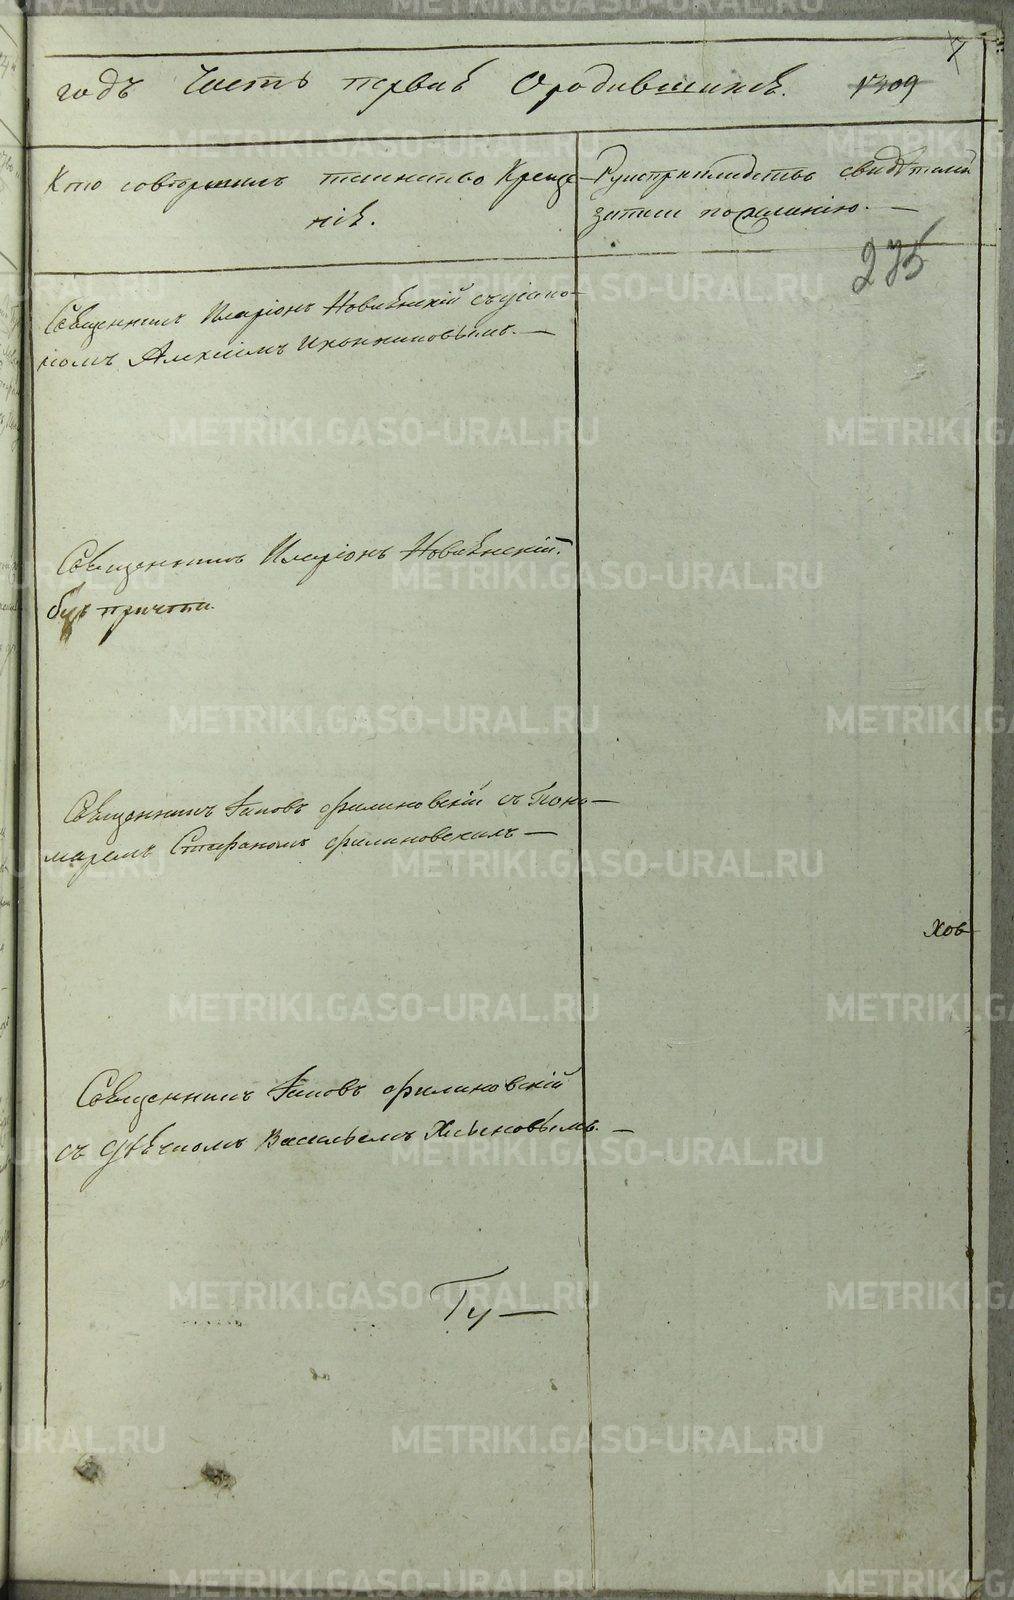 7
годъ Часть первая Ородившихся. 1309
Кто совершилъ таинство Креще-
нія.
Рукоприкладство свидѣтелей
записи пожеланію. —
235
Священникъ Иларіонъ Новаѣнскій съ
комъ Алексіемъ Иконниковымъ. —
Священникъ Иларіонъ Новаѣнскій.
безъ причта.
Священникъ Іаковъ Филиновскій съ Поно-
маремъ Стефаномъ Филиновскимъ —
хов
Священникъ Іаковъ Филиновскій
съ Дьячкомъ Васильемъ Хлыновымъ. —
METRIKI.GASO-URAL.RU